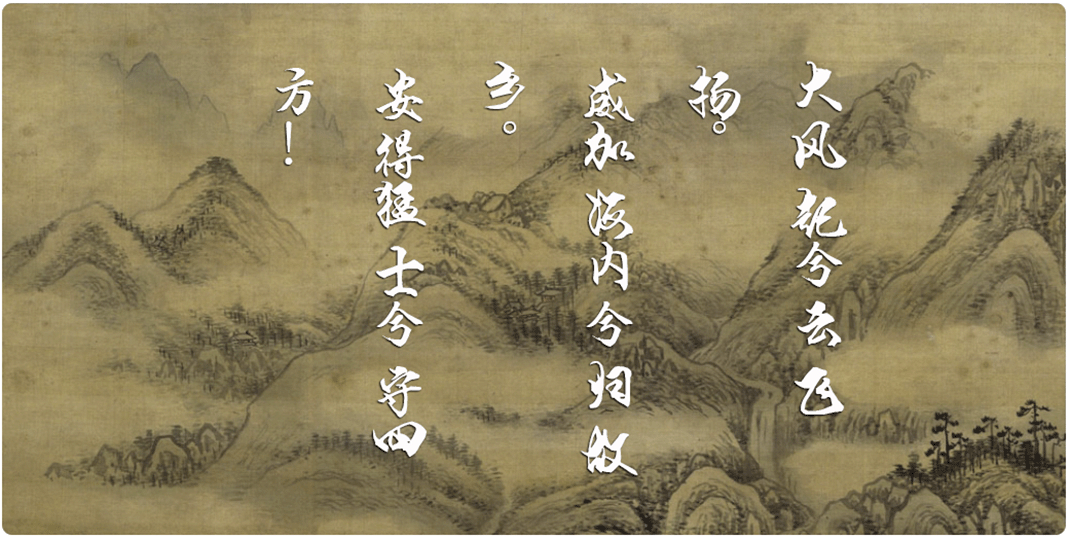 大风起兮云飞
扬。
威加海内兮归故
乡。
安得猛士兮守四
方！